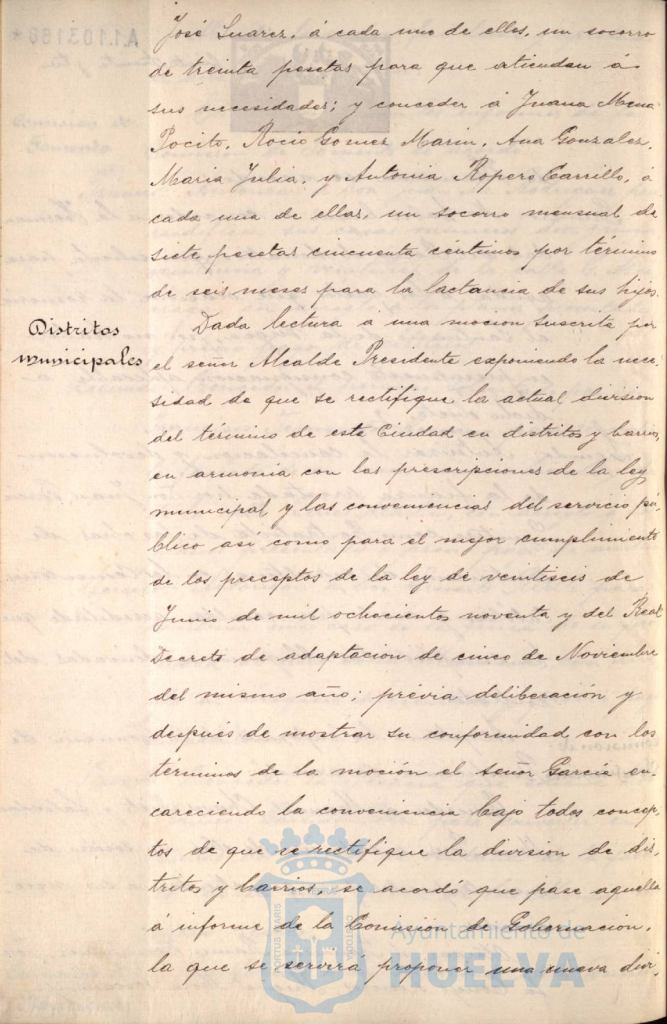 José Suarez, á cada uno de ellos, un socorro
de treinta pesetas para que atiendan á
sus necesidades; y conceder á Juana Mena
Pocito, Rocio Gomez Marin, Ana Gonzalez,
Maria Julia, y Antonia Ropero Carrillo, á
cada una de ellas, un socorro mensual de
siete pesetas cincuenta céntimos por término
de seis meses para la lactancia de sus hijos.
Distritos
municipales
Dada lectura á una mocion suscrita por
el señor Alcalde Presidente exponiendo la nece-
sidad de que se rectifique la actual division
del término de esta Ciudad en distritos y barrios
en armonia con las prescripciones de la ley
municipal y las conveniencias del servicio pú-
blico asi como para el mejor cumplimiento
de los preceptos de la ley de veintiseis de
Junio de mil ochocientos noventa y del Real
Decreto de adaptacion de cinco de Noviembre
del mismo año; prévia deliberación y
después de mostrar su conformidad con los
términos de la moción el señor García en-
careciendo la conveniencia bajo todos concep-
tos de que se rectifique la division de dis-
tritos y barrios, se acordó que pase aquella
á informe de la Comision de Gobernacion,
la que se servirá proponer una nueva divi-
PORTUS MARIS
CUSTODIA
Ayuntamiento de
HUELVA